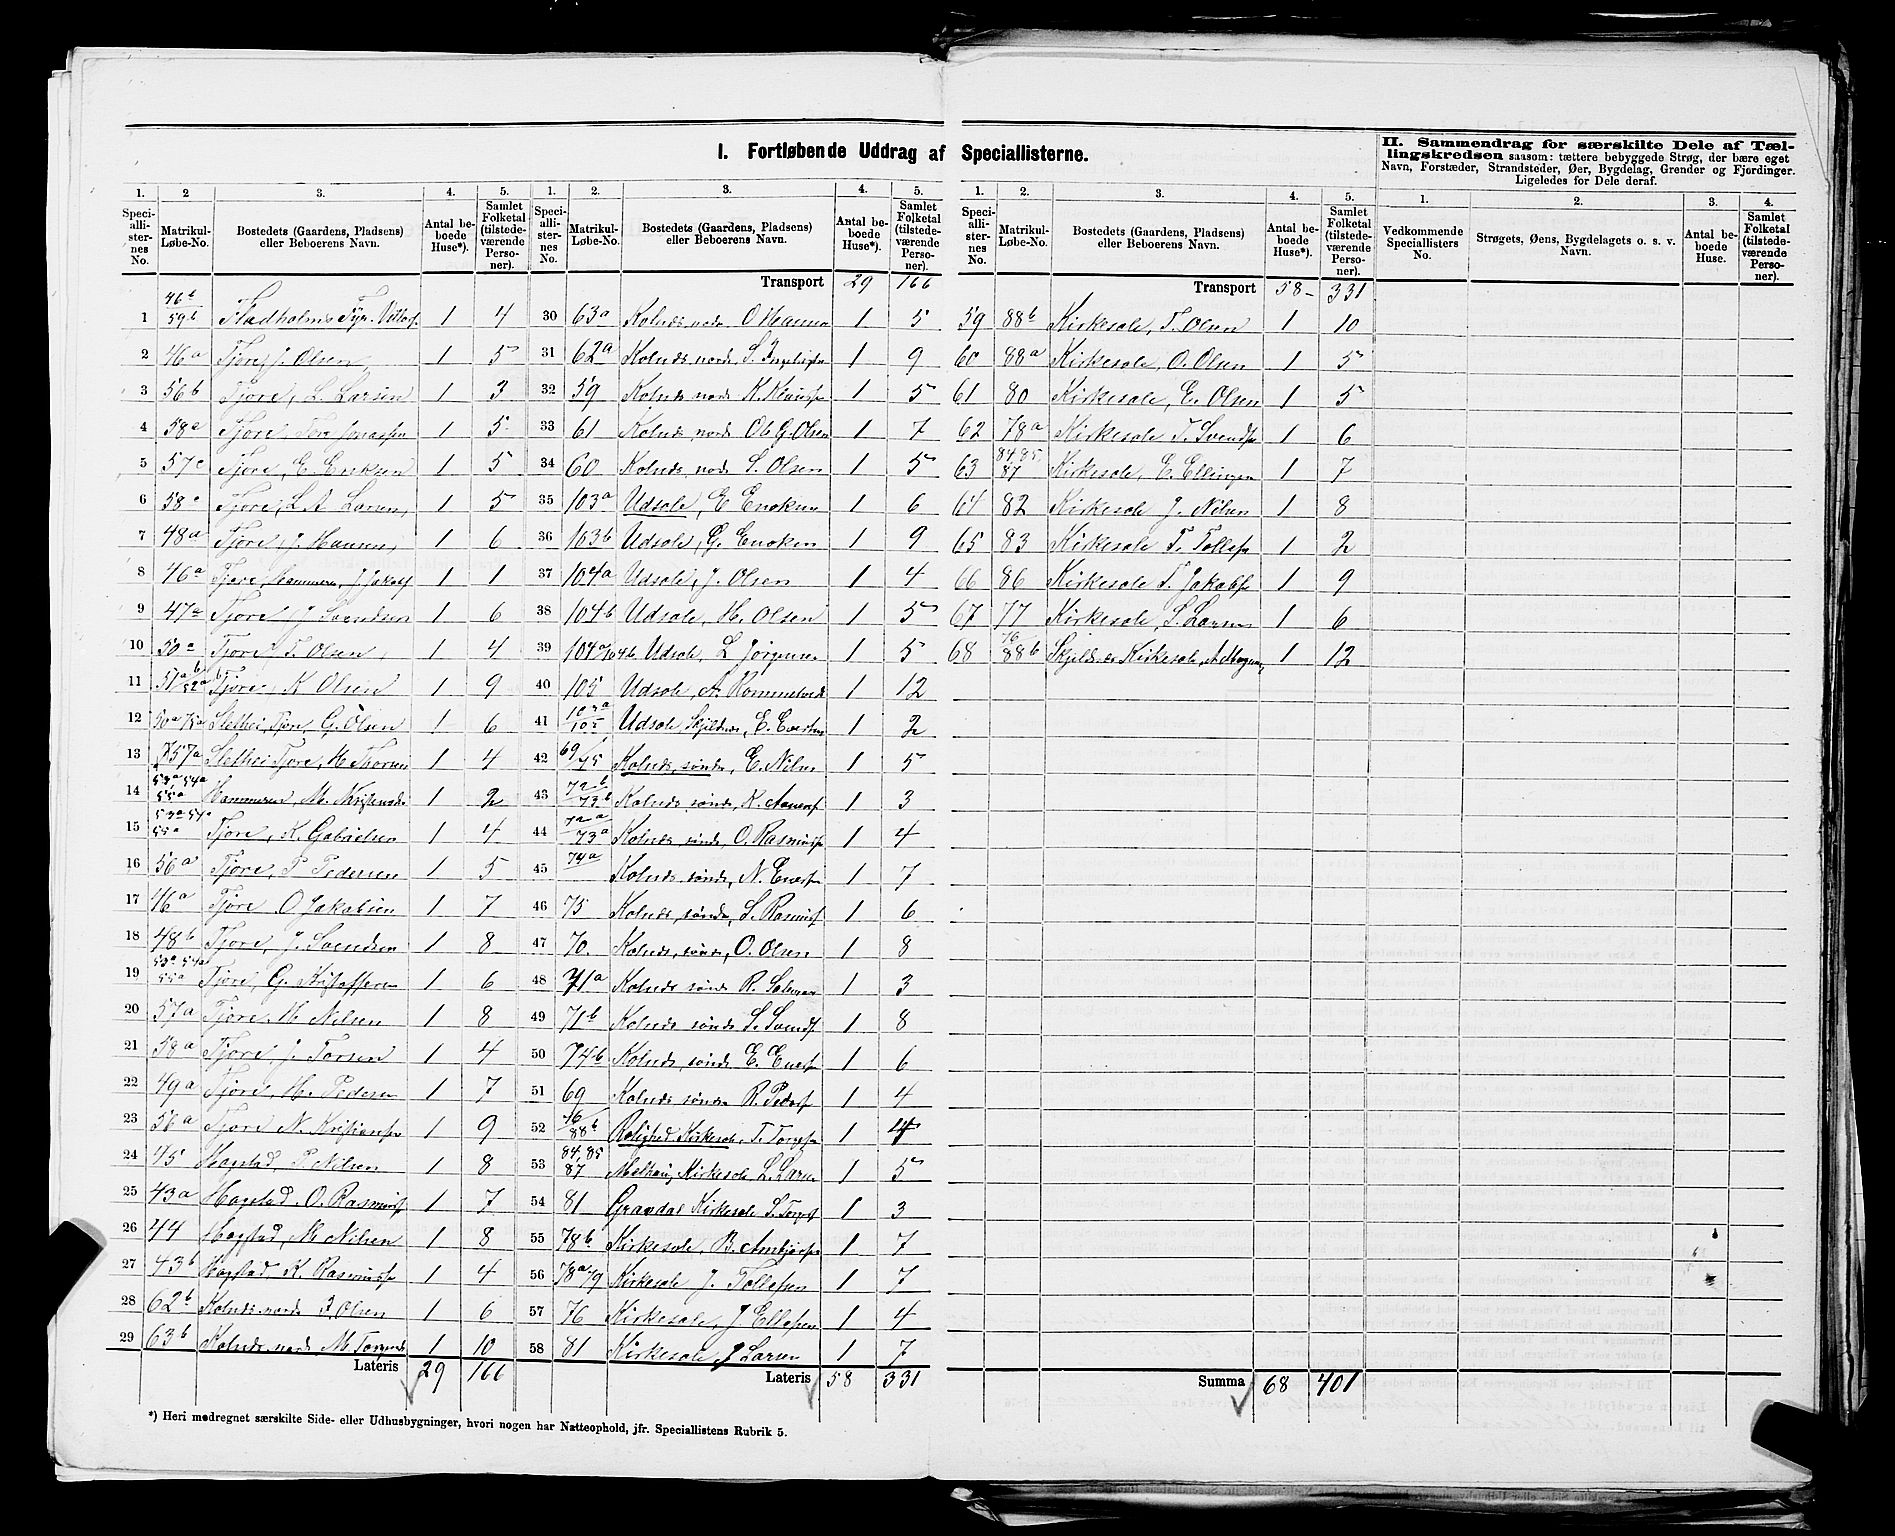 I. Fortløbende Uddrag af Speciallisterne.
II. Sammendrag for særskilte Dele af Tæl-
lingskredsen saasom: tættere bebyggede Strøg, der bære eget
Navn, Forstæder, Strandsteder, Øer, Bygdelag, Grender og Fjordinger.
Ligeledes for Dele deraf.
1. 2 3. 4. 5.
Speciallisternes No. Matrikul-Løbe-No. Bostedets (Gaardens, Pladsens) eller Beboerens Navn. Antal beboede Huse*). Samlet Folketal (tilstedeværende Personer).
1 46b/59b Tyr. 1 4
2 46a Tjøre, J. Olsen 1 5
3 56b Tjøre, L. Larsen 1 3
4 58a Tjøre, Tore Jonassen 1 5
5 57c Tjøre, E. Eriksen 1 5
6 58 Tjøre, L A Larsen 1 5
7 48a Tjøre, J. Hansen 1 6
8 46a Tjøre, Hammeren, J. 1 1
9 47a Tjøre J Svendsen 1 6
10 50a Tjøre T. Olsen 1 4
11 51a 52a Tjøre, K Olsen 1 9
12 50a 75a Slethei, Tjøre, G. Olsen 1 6
13 57a Slethei Tjøre, H Thorsen 1 4
14 53a 54a 55a Hammeren, M. 1 2
15 53a 54a 55a Tjøre, K. Gabrielsen 1 4
16 56a Tjøre, P Pedersen 1 5
17 46a Tjøre O Jakobsen 1 7
18 48b Tjøre, J. Svendsen 1 8
19 53a 54a 55a Tjøre, G. Kristoffersen 1 6
20 57a Tjøre, H Nilsen 1 8
21 58a Tjøre J. Torsen 1 4
22 49a Tjøre, H. Pedersen 1 7
23 56a Tjøre N. Kristiansen 1 9
24 45 Hogstad, P Nilsen 1 8
25 43a Hogstad, O. Rasmus 1 7
26 44 Hogstad, M Nilsen 1 8
27 43b Hogstad, K. Rasmus 1 4
28 62b Kolnes nordr Olsen 1 6
29 63b Kolnes nordr M 1 10
Lateris 29 166
1. 2. 3. 4. 5.
Speciallisternes No. Matrikul-Løbe-No. Bostedets (Gaardens, Pladsens) eller Beboerens Navn. Antal beboede Huse*). Samlet Folketal (tilstedeværende Personer).
Transport 29 166
30 63a Kolnes nordr O Hansen 1 5
31 62a Kolnes nordr S. 1 9
32 59 Kolnes nordr K. 1 5
33 61 Kolnes, nordr Ole G. Olsen 1 7
34 60 Kolnes, nordr S. Olsen 1 5
35 103a Udsole, E Enoksen 1 6
36 103b Udsole, G. Enoksen 1 9
37 104a Udsole, J. Olsen 1 4
38 104b Udsole, H. Olsen 1 5
39 104a/104b Udsole, L Jørgensen 1 5
40 105 Udsole, A. Rommetvedt 1 12
41 103a/105 Udsole, Skjeldnes, E. 1 2
42 69/75 Kolnes, søndr, E. Nilsen 1 5
43 72b/73b Kolnes, søndr, K. 1 3
44 72a/73a Kolnes, søndr, O. Rasmus 1 4
45 74a Kolnes søndr, N. 1 7
46 75 Kolnes, søndr, S. Rasmus 1 6
47 70. Kolnes, søndr, O. Olsen 1 8
48 71a Kolnes søndr R. 1 3
49 71b Kolnes søndr S. 1 8
50 74b Kolnes, søndr E. 1 6
51 69 Kolnes søndr R. Peders 1 4
52 76/88b Rolighed Kirkesole, T. 1 4
53 84, 85 87 Melhaug, Kirkesole L. Larsen 1 5
54 81 Grandal Kirkesole S. 1 3
55 78b Kirkesole, B. 1 7
56 78a 79 Kirkesole J. Tollefsen 1 7
57 76 Kirkesole, J Ellefsen 1 4
58 81 Kirkesole J Larsen 1 7
Lateris 58 331
*) Heri medregnet særskilte Side- eller Udhusbygninger, hvori nogen har Natteophold, jfr. Speciallistens Rubrik 5.
1. 2. 3. 4. 5.
Speciallisternes No. Matrikul-Løbe-No. Bostedets (Gaardens, Pladsens) eller Beboerens Navn. Antal beboede Huse*). Samlet Folketal (tilstedeværende Personer).
Transport 58 - 331
59 88b Kirkesole, T. Olsen 1 10
60 88a Kirkesole, O. Olsen 1 5
61 80 Kirkesole, E. Olsen 1 5
62 78a Kirkesole T. Svends 1 6
63 84, 85 87 Kirkesole, E. Ellingsen 1 7
64 82 Kirkesole J. Nilsen 1 8
65 83 Kirkesole T. Tollefs 1 2
66 86 Kirkesole T. Jakobs 1 9
67 77 Kirkesole, S. Larsen 1 6
68 76/88b Kirkesole, 1 12
Summa 68 401
1. 2. 3. 4.
Vedkommende Speciallisters No. Strøgets, Øens, Bygdelagets o. s. v. Navn. Antal beboede Huse. Samlet Folketal (tilstedeværende Personer).